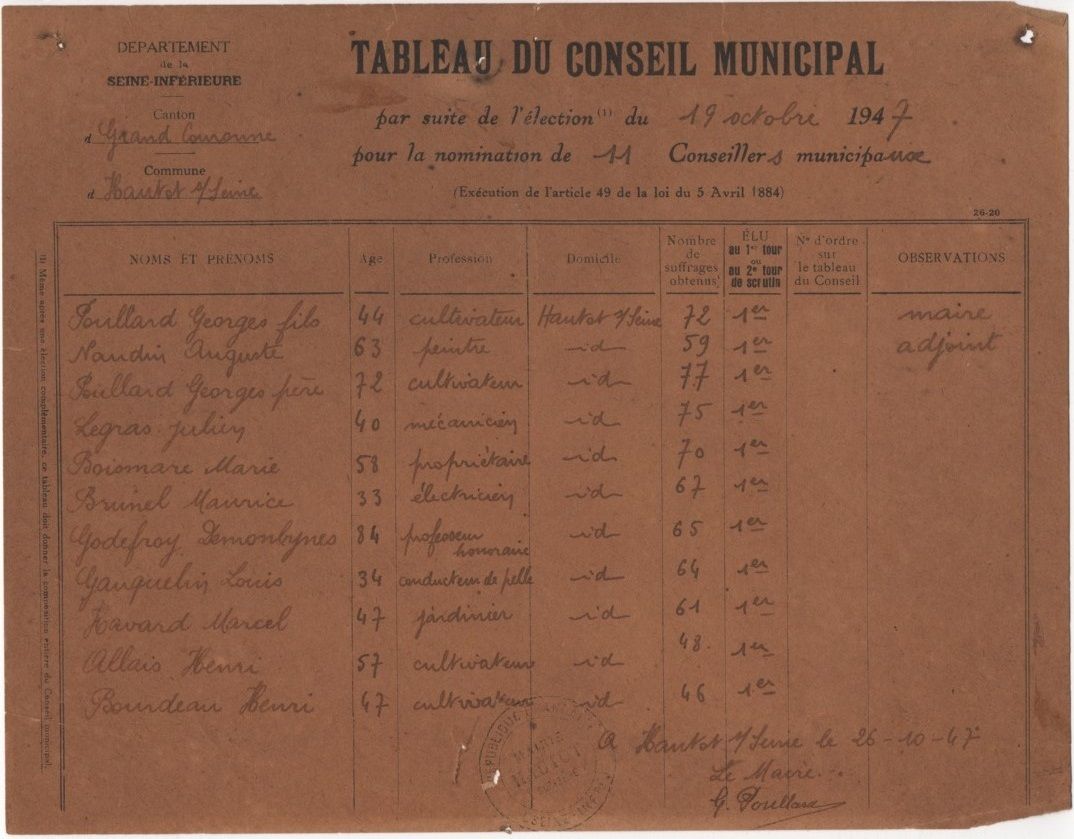 DEPARTEMENT
de la
SEINE-INFÉRIEURE
Canton
d Grand Couronne
Commune
d Hautot s/Seine
TABLEAU DU CONSEIL MUNICIPAL
par suite de l'élection (1) du 19 octobre 1947
pour la nomination de 11 Conseillers municipaux
(Exécution de l'article 49 de la loi du 5 Avril 1884)
26-20
NOMS ET PRÉNOMS Age Profession Domicile Nombre de suffrages obtenus ÉLU au 1er tour ou au 2e tour de scrutin N° d'ordre sur le tableau du Conseil OBSERVATIONS
Poullard Georges fils 44 cultivateur Hautot s/Seine 72 1er maire
Naudin Auguste 63 peintre id 59 1er adjoint
Poullard Georges père 72 cultivateur id 77 1er
Legras Julien 40 mécanicien id 75 1er
Boismare Marie 58 propriétaire id 70 1er
Brunel Maurice 33 électricien id 67 1er
Godefroy Demonbynes 84 professeur honoraire id 65 1er
Gauquelin Louis 34 conducteur de pelle id 64 1er
Havard Marcel 47 jardinier id 61 1er
Allais Henri 57 cultivateur id 48. 1er
Bourdeau Henri 47 cultivateur id 46 1er
A Hautot s/Seine le 26-10-47
Le Maire
G. Poullard
(1) Même après une élection complémentaire, ce tableau doit donner la composition entière du Conseil municipal.